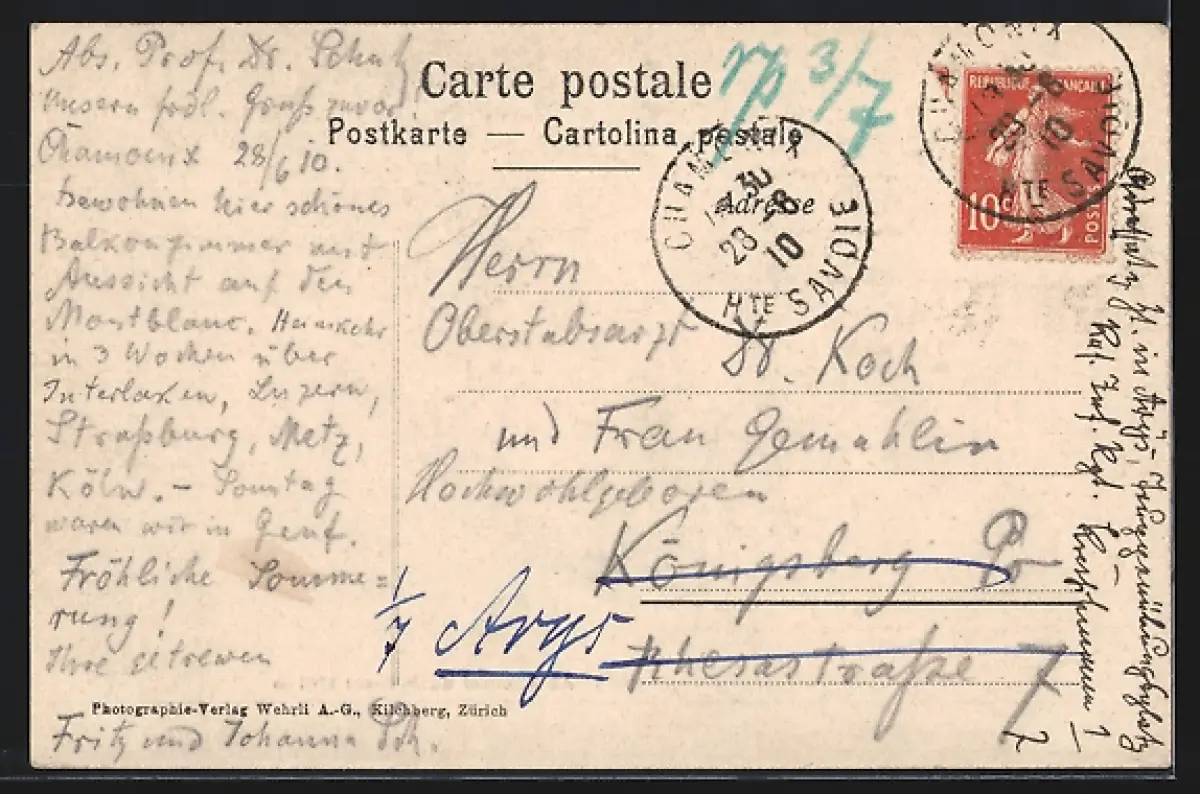 Abs. Prof. Dr. Schulz
Unsern frdl. Gruß zuvor!
Chamonix 28/6 10.
bewohnen hier schönes
Balkonzimmer mit
Aussicht auf den
Montblanc. Heimkehr
in 3 Wochen über
Interlaken, Luzern,
Straßburg, Metz,
Köln. – Sonntag
waren wir in Genf.
Fröhliche Somme=
rung!
Ihre
Fritz und Johanna Sch.
Carte postale
Postkarte — Cartolina postale
3/7
Adresse
CHAMONIX
30
28-6
10
HTE SAVOIE
CHAMONIX
30
-6
10
HTE SAVOIE
REPUBLIQUE FRANÇAISE
10c
POSTES
Herrn
Oberstabsarzt
Dr. Koch
und Frau Gemahlin
Hochwohlgeboren
Königsberg Pr
1/7 Arys
Rhesastraße 7
Photographie-Verlag Wehrli A.-G., Kilchberg, Zürich
z. in Arys, Truppenübungsplatz